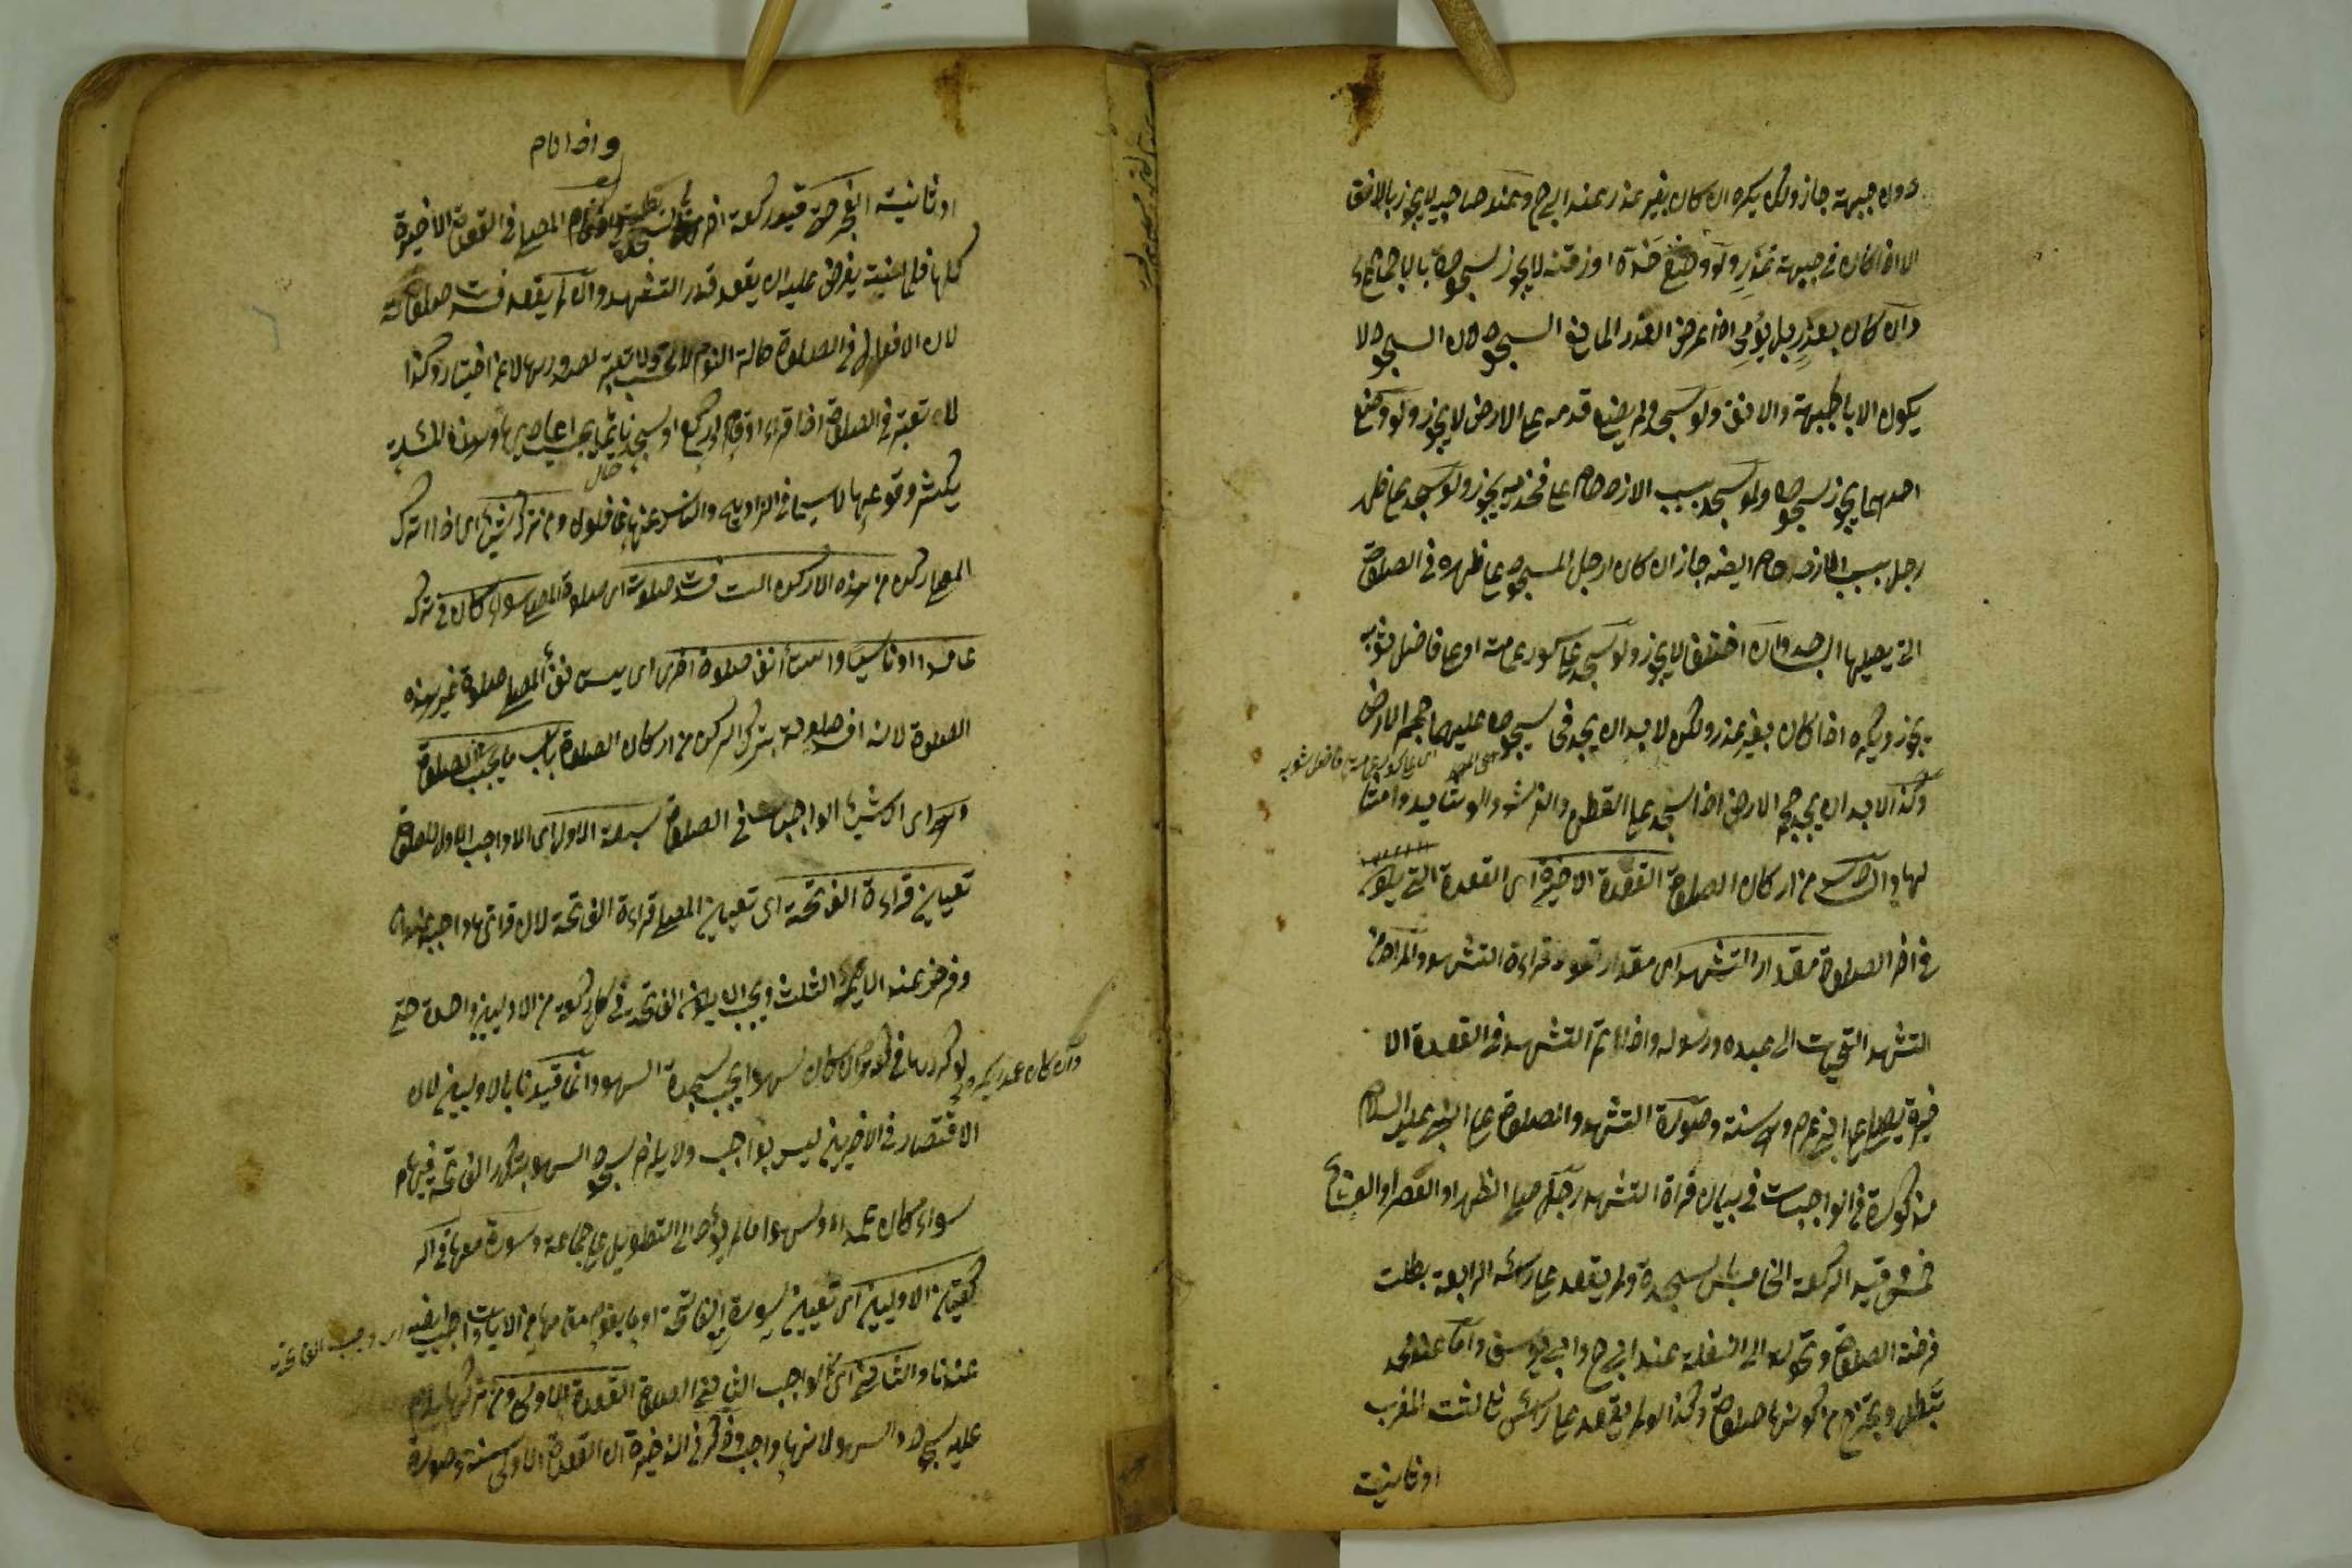 دون جبهته جاز ولكن يكره ان كان بغير عذر عند ابي ح وعند صاحبيه لا يجوز بالانف
الا اذا كان في جبهته عذر ولو وضع خده او ذقنه لا يجوز سجوده بالاجماع
وان كان بعذر بل يؤمي اذ اعرض العذر المانع السجود لان السجود لا
يكون الا بالجبهة والانف ولو سجد ولم يضع قدميه على الارض لا يجوز ولو وضع
احديهما يجوز سجوده ولو سجد بسبب الازدحام على فخذيه يجوز ولو سجد على ظهر
رجل بسبب الازدحام ايضا جاز ان كان الرجل المسجود على ظهره في الصلوة
التي يصليها الساجد وان اختلفا لا يجوز ولو سجد على كور عمامته او على فاضل ثوبه
يجوز ويكره اذا كان بغير عذر ولكن لا بد ان يجد في سجوده عليهما حجم الارض
اى على كور عمامته فاضل ثوبه
وكذا لا بد ان يجد حجم الارض اذا سجد على القطن والفرش والوسائد وامثا
لها والسادس من اركان الصلوة القعدة الاخيرة اى القعدة التي يكون
في اخر الصلوة مقدار التشهد اى مقدار قعود قراءة التشهد والمراد من
التشهد التحيات الى عبده ورسوله واذا تم التشهد في القعدة الا
خيرة يصلي على النبي عم وهو سنة وصورة التشهد والصلوة على النبي عليه السلام
مذكورة في الواجبات في بيان قراءة التشهد رجل صلى الظهر او العصر او العشاء
خمس وقيد الركعة الخامس بسجدة ولم يقعد على رأس الرابعة بطلت
فرضه الصلوة وتحولت الى النفلة عند ابي ح وابي يوسف واما عند محمد
تبطل ويخرج من كونها صلوة وكذا لو لم يقعد على رأس ثالثت المغرب
او ثانيت
واذا نام
او ثانيت الفجر حتى قيد ركعة اخر بسجدة المصلي في القعدة الاخيرة
كلها فلما انتبه يفرض عليه ان يقعد قدر التشهد وان لم يقعد فسدت صلوته
لان الافعال في الصلوة حالة النوم لا تحسب ولا تعتبر لصدورها لا عن اختيار وكذا
لا تعتبر في الصلوة اذا قراء او قام او ركع او سجد نائما يجب اعادتها وهذه المسئلة
يكثر وقوعها لا سيما في التراويح والناس عنها غافلون ومن ترك شيئا اى اذا ترك
المصلي ركن من هذه الاركان الست فسدت صلوته اى صلوة المصلي سواء كان في تركه
عامدا او ناسيا واستأنف صلوة اخرى اى يستأنف المصلي صلوة غير هذه
الصلوة لانه افسد صلوته بترك الركن من اركان الصلوة باب ما يجب في الصلوة
وهو اى الاشياء الواجبات في الصلوة سبعة الاول اى الواجب الاول للصلوة
تعيين قراءة الفاتحة اى تعيين المصلي قراءة الفاتحة لان قرائتها واجب عندنا
وفرض عند الايمة الثلث ويجب ان يكون الفاتحة في كل ركعة من الاوليين واحدة حتى
لو كررها في ركعة ان كان سهوا يجب سجدة السهو وانما قيدنا بالاوليين لان
وان كان عمدا يكره
الاقتصار في الاخريين ليس بواجب ولا يلزم سجود السهو بتكرار الفاتحة فيهما
سواء كان عمدا او سهوا ما لم يؤد الى التطويل على جماعة وسورة معها في الر
كعتين الاوليين اى تعيين سورة الفاتحة او ما يقوم مقامها من الايات واجب ايضا
عندنا والثاني اى الواجب الثاني في الصلوة القعدة الاولى ومن تركها يلزم
عليه سجود السهو لانها واجب وذكر في الذخيرة ان القعدة الاولى سنة وصورة